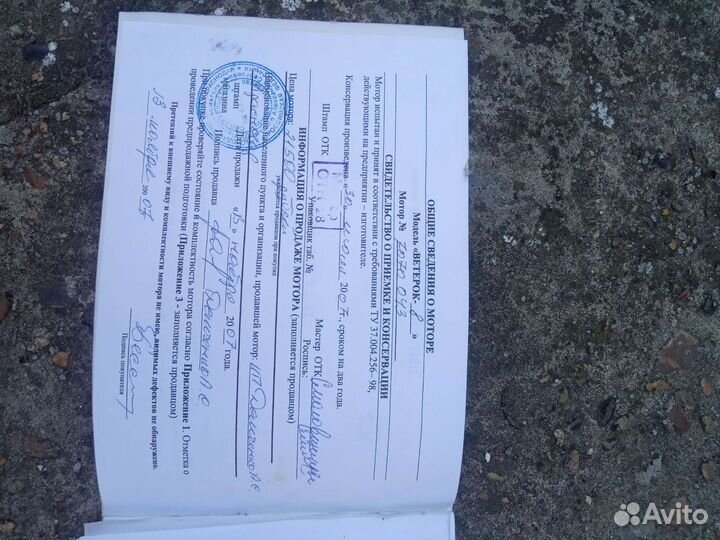 ОБЩИЕ СВЕДЕНИЯ О МОТОРЕ
Модель «ВЕТЕРОК- 8 »
Мотор № 7070 043
СВИДЕТЕЛЬСТВО О ПРИЕМКЕ И КОНСЕРВАЦИИ
Мотор испытан и принят в соответствии с требованиями ТУ 37.004.256– 98,
действующими на предприятии – изготовителе.
Консервация произведена «30» июля 2007г., сроком на два года.
Штамп ОТК Мастер ОТК
Упаковщик таб. № Роспись:
ИНФОРМАЦИЯ О ПРОДАЖЕ МОТОРА (заполняется продавцом)
Цена мотора 21500
укрывается продавцом при покупке
Наименование населенного пункта и организации, продавшей мотор: ИП
Штамп Дата продажи «13» ноября 2007года.
магазина Подпись продавца
При покупке проверяйте состояние и комплектность мотора согласно Приложение 1. Отметка о
проведении предпродажной подготовки (Приложение 3 - заполняется продавцом)
Претензий к внешнему виду и комплектности мотора не имею, видимых дефектов не обнаружено.
13 ноября 2007.
Подпись покупателя
Avito